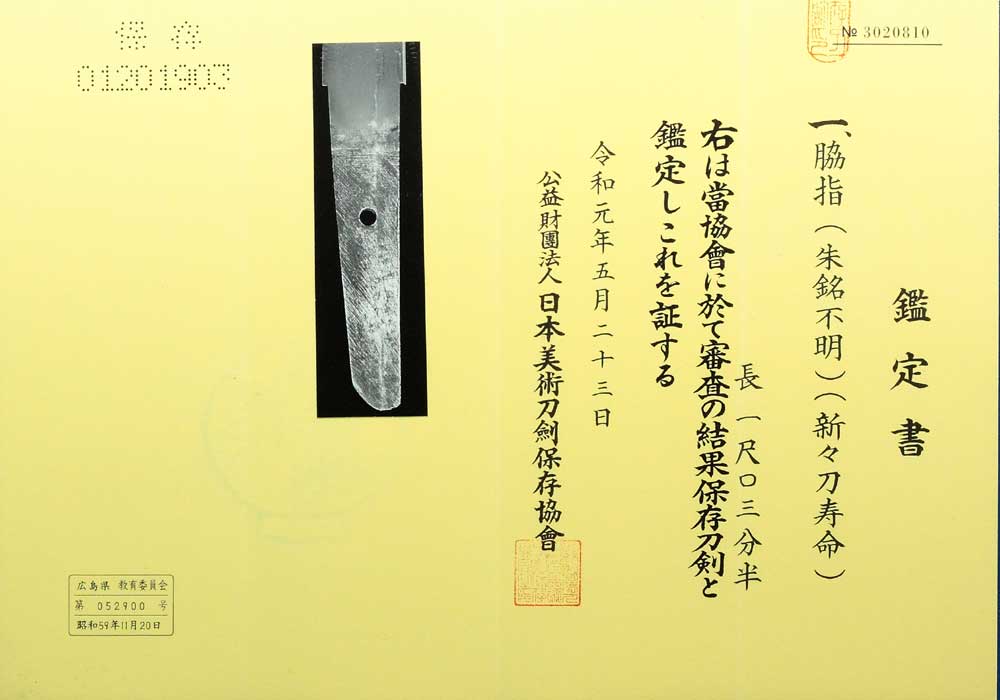 № 3020810
鑑定書
一、脇指(朱銘不明)(新々刀寿命)
長 一尺〇三分半
右は當協會に於て審査の結果保存刀剣と
鑑定しこれを証する
令和元年五月二十三日
公益財團法人 日本美術刀劍保存協會
保存
01201903
広島県 教育委員会
第 052900 号
昭和59年11月20日